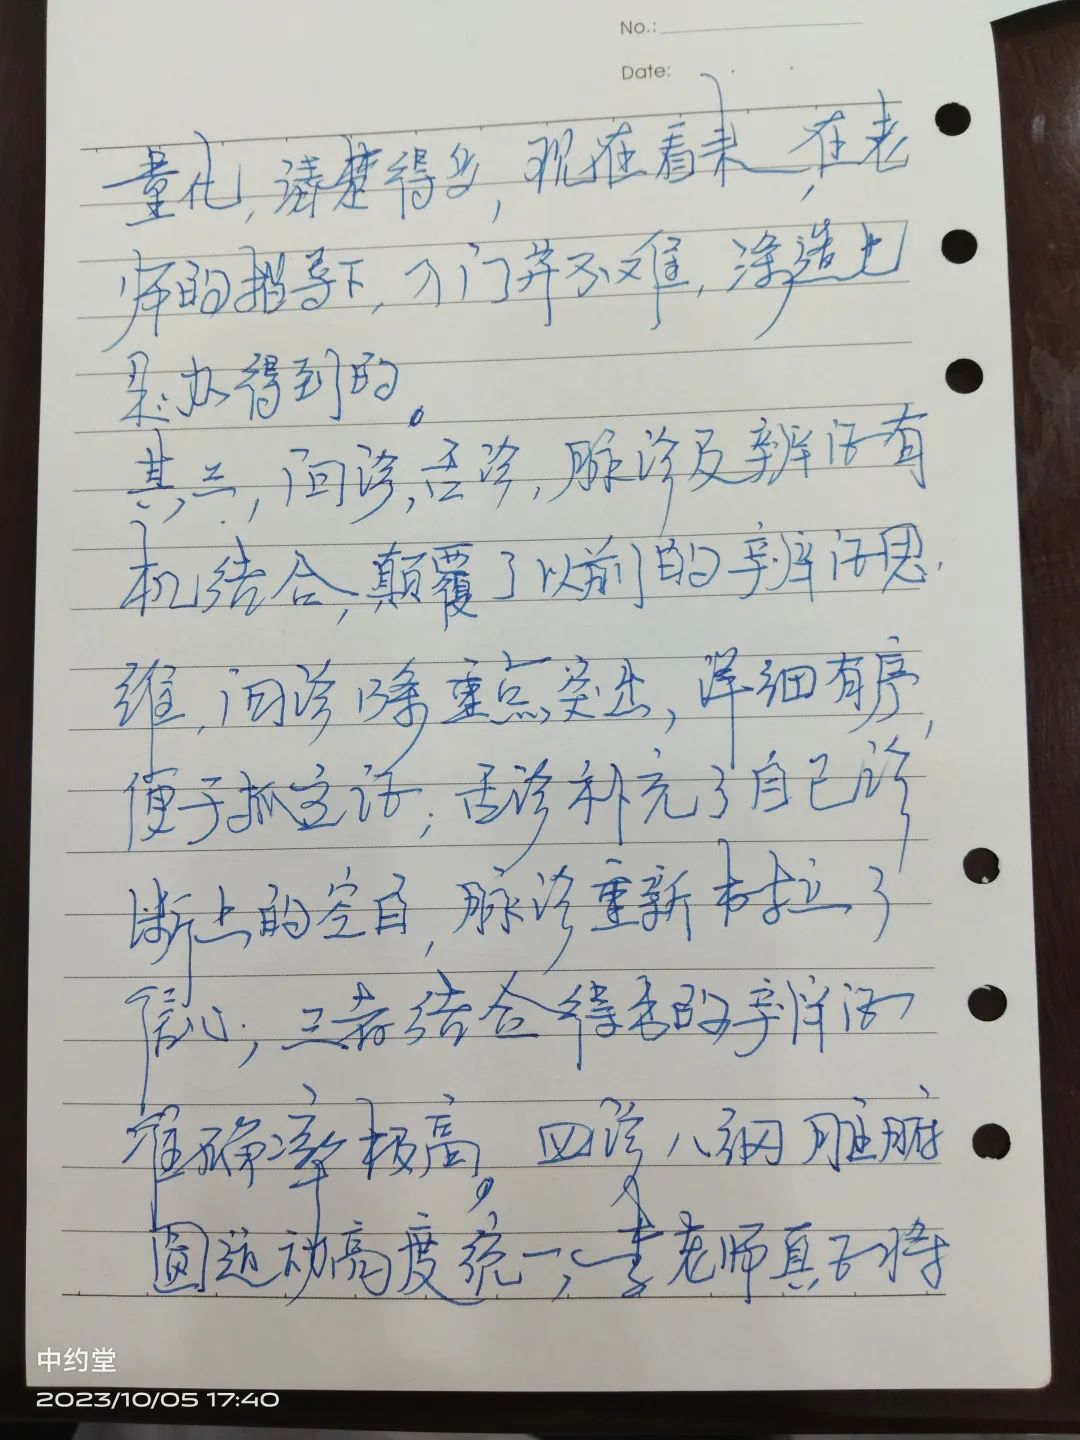 No.:
Date:
量化,清楚得多,现在看来,在老
师的指导下,入门并不难,深造也
是办得到的。
其三,问诊,舌诊,脉诊及辨治有
机结合,颠覆了以前的辨治思
维,问诊除重点突出,详细有序,
便于抓主证;舌诊补充了自己诊
断上的空白,脉诊重新树立了
信心;三者结合得出的辨治
准确率极高。四诊八纲脏腑
圆运动高度统一,李老师真不将
中约堂
2023/10/05 17:40